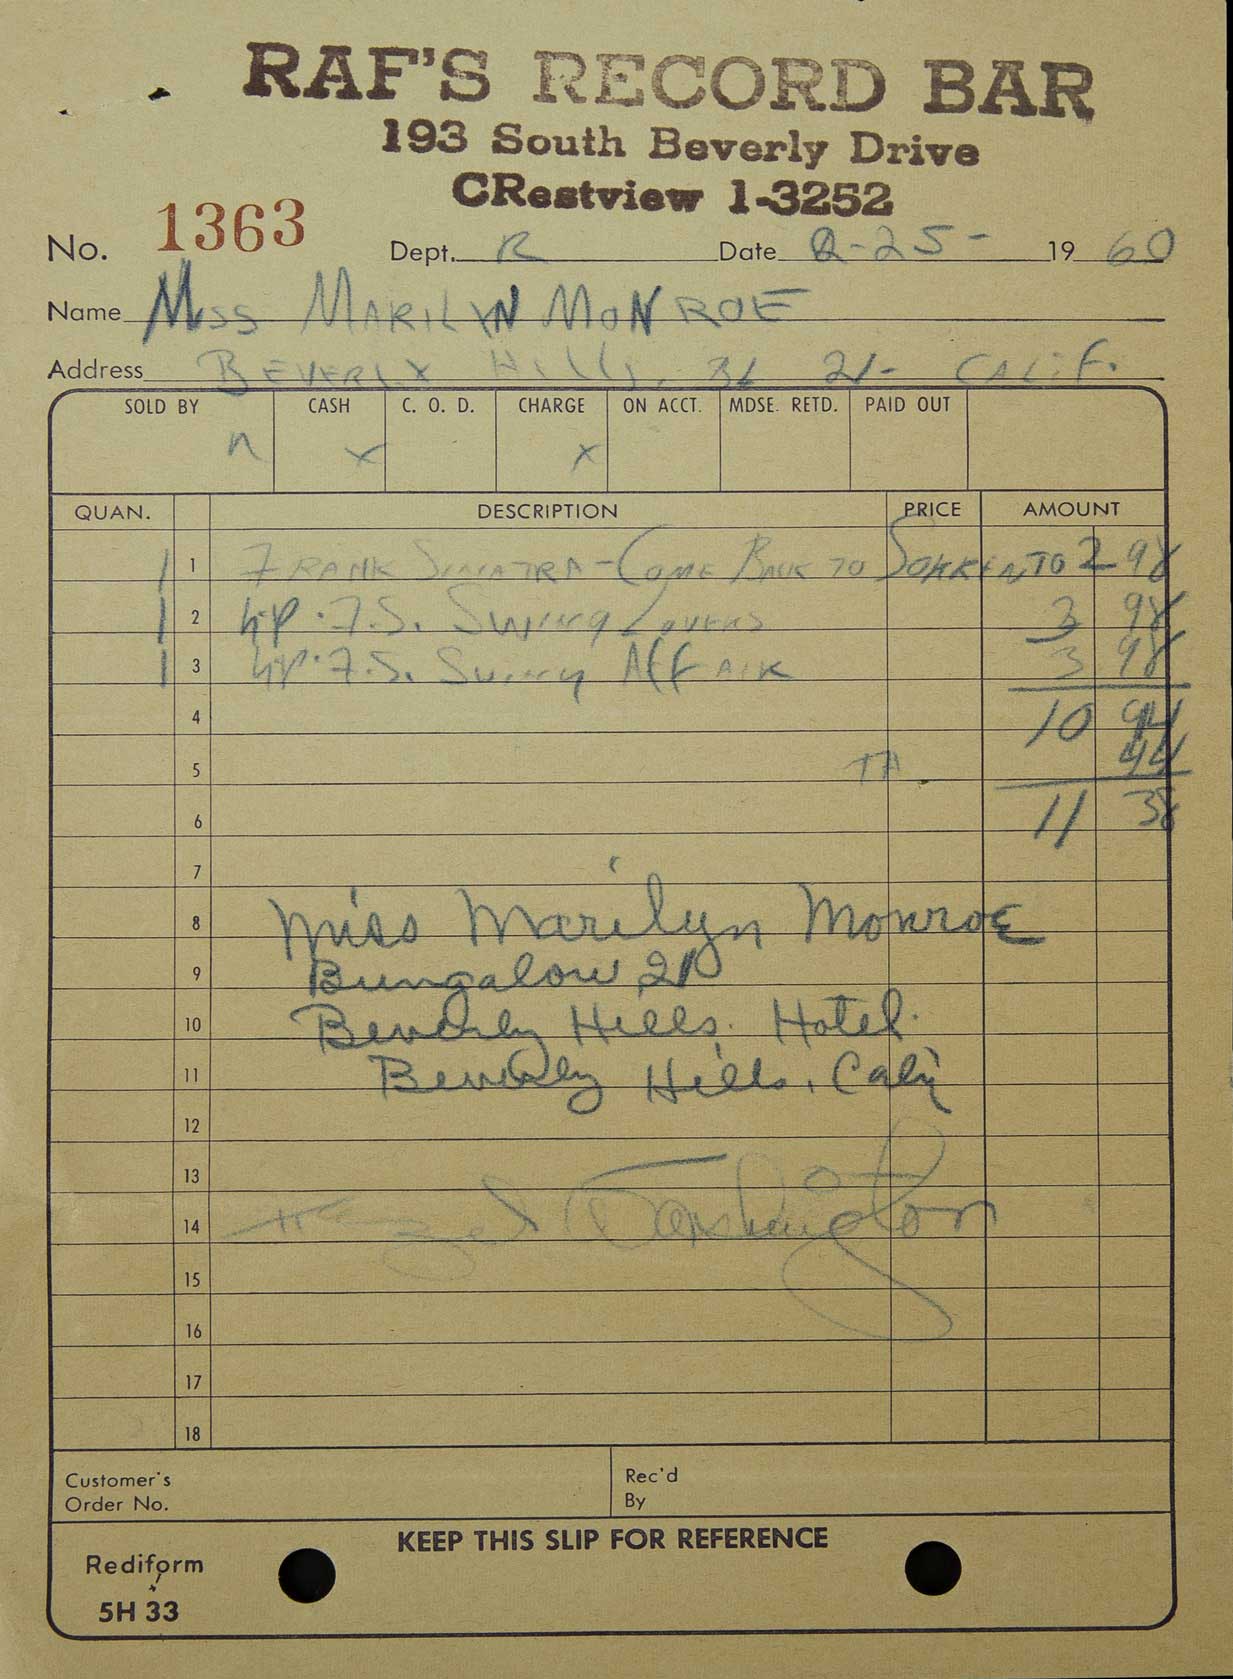 RAF'S RECORD BAR
193 South Beverly Drive
CRestview 1-3252
No. 1363 Dept. R Date 2-25- 1960
Name Miss MARILYN MONROE
Address BEVERLY Hills, BL 21- CALIF.
SOLD BY CASH C. O. D. CHARGE ON ACCT. MDSE. RETD. PAID OUT
n x x
QUAN. DESCRIPTION PRICE AMOUNT
1 1 FRANK SINATRA - COME BACK TO SORRENTO 2 98
1 2 HP. F.S. Swing Lovers 3 98
1 3 HP. F.S. Swing AFFAIR 3 98
4 10 94
5 TA 44
6 11 38
7
8 Miss Marilyn Monroe
9 Bungalow 21
10 Beverly Hills. Hotel.
11 Beverly Hills, Calif
12
13
14 Hazel Washington
15
16
17
18
Customer's
Order No.
Rec'd
By
KEEP THIS SLIP FOR REFERENCE
Rediform
5H 33